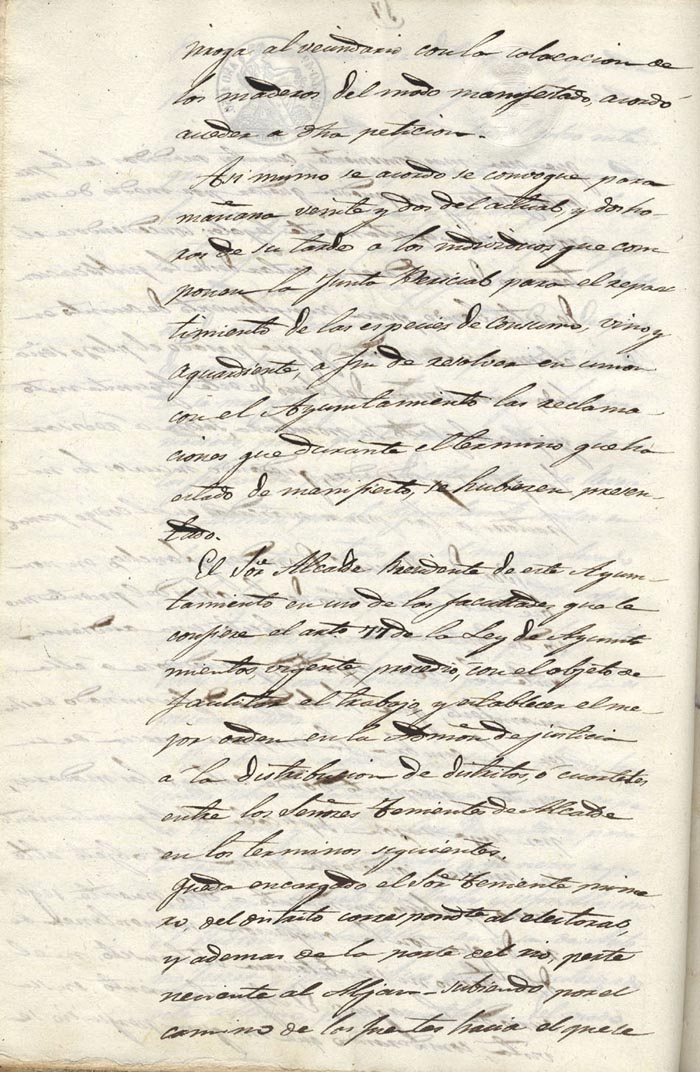 al vecindario con la colocacion de
los maderos del modo manifestado, acordó
acceder a dha peticion.
Asi mismo se acordo se convoque para
mañana veinte y dos del actual, y dos ho-
ras de su tarde a los individuos que com
ponen la Junta Pericial para el repar-
timiento de las especies de consumo, vino y
aguardiente, a fin de resolver en union
con el Ayuntamiento las reclama-
ciones que durante el termino que ha
estado de manifiesto, se hubiesen presen-
tado.
El Sor. Alcalde Presidente de este Ayun-
tamiento en uso de las facultades que le
confiere el arto 77 de la Ley de Ayunta
mientos vigente, procedió, con el objeto de
facilitar el trabajo, y establecer el me
jor orden en la Admon de justicia
a la distribucion de distritos, ó cuarteles
entre los Señores Tenientes de Alcalde
en los terminos siguientes.
Queda encargado el Sor. Teniente prime
ro, del distrito correspondte al electoral,
y ademas de la parte del rio, perte
neciente al subiendo por el
camino de los hacia el que se